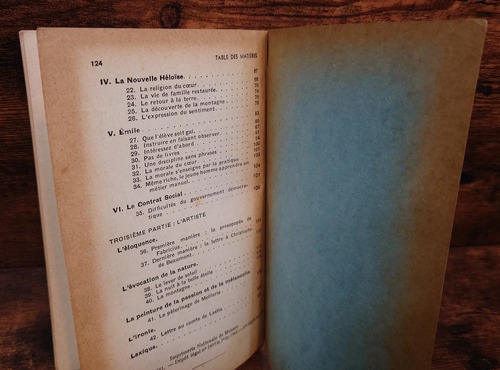 124 TABLE DES MATIÈRES
IV. La Nouvelle Héloïse. 67
22. La religion du cœur. 68
23. La vie de famille restaurée. 70
24. Le retour à la terre. 74
25. La découverte de la montagne. 76
26. L'expression du sentiment. 78
V. Émile
27. Que l'élève soit gai.
28. Instruire en faisant observer.
29. Intéressez d'abord
30. Pas de livres 100
31. Une discipline sans phrases 101
32. La morale du cœur.
33. La morale s'enseigne par la pratique.
34. Même riche, le jeune homme apprendra un
métier manuel. 107
VI. Le Contrat Social
35. Difficultés du gouvernement démocra-
tique
TROISIÈME PARTIE : L'ARTISTE
L'éloquence.
36. Première manière : la prosopopée de
Fabricius.
37. Dernière manière : la lettre à Christophe
de Beaumont.
L'évocation de la nature.
38. Le lever de soleil
39. La nuit à la belle étoile
40. La montagne
La peinture de la passion et de la mélancolie.
41. Le pèlerinage de Meillerie
L'ironie.
42. Lettre au comte de Lastic
Lexique.
Imprimerie Nationale de Monaco
Dépôt légal